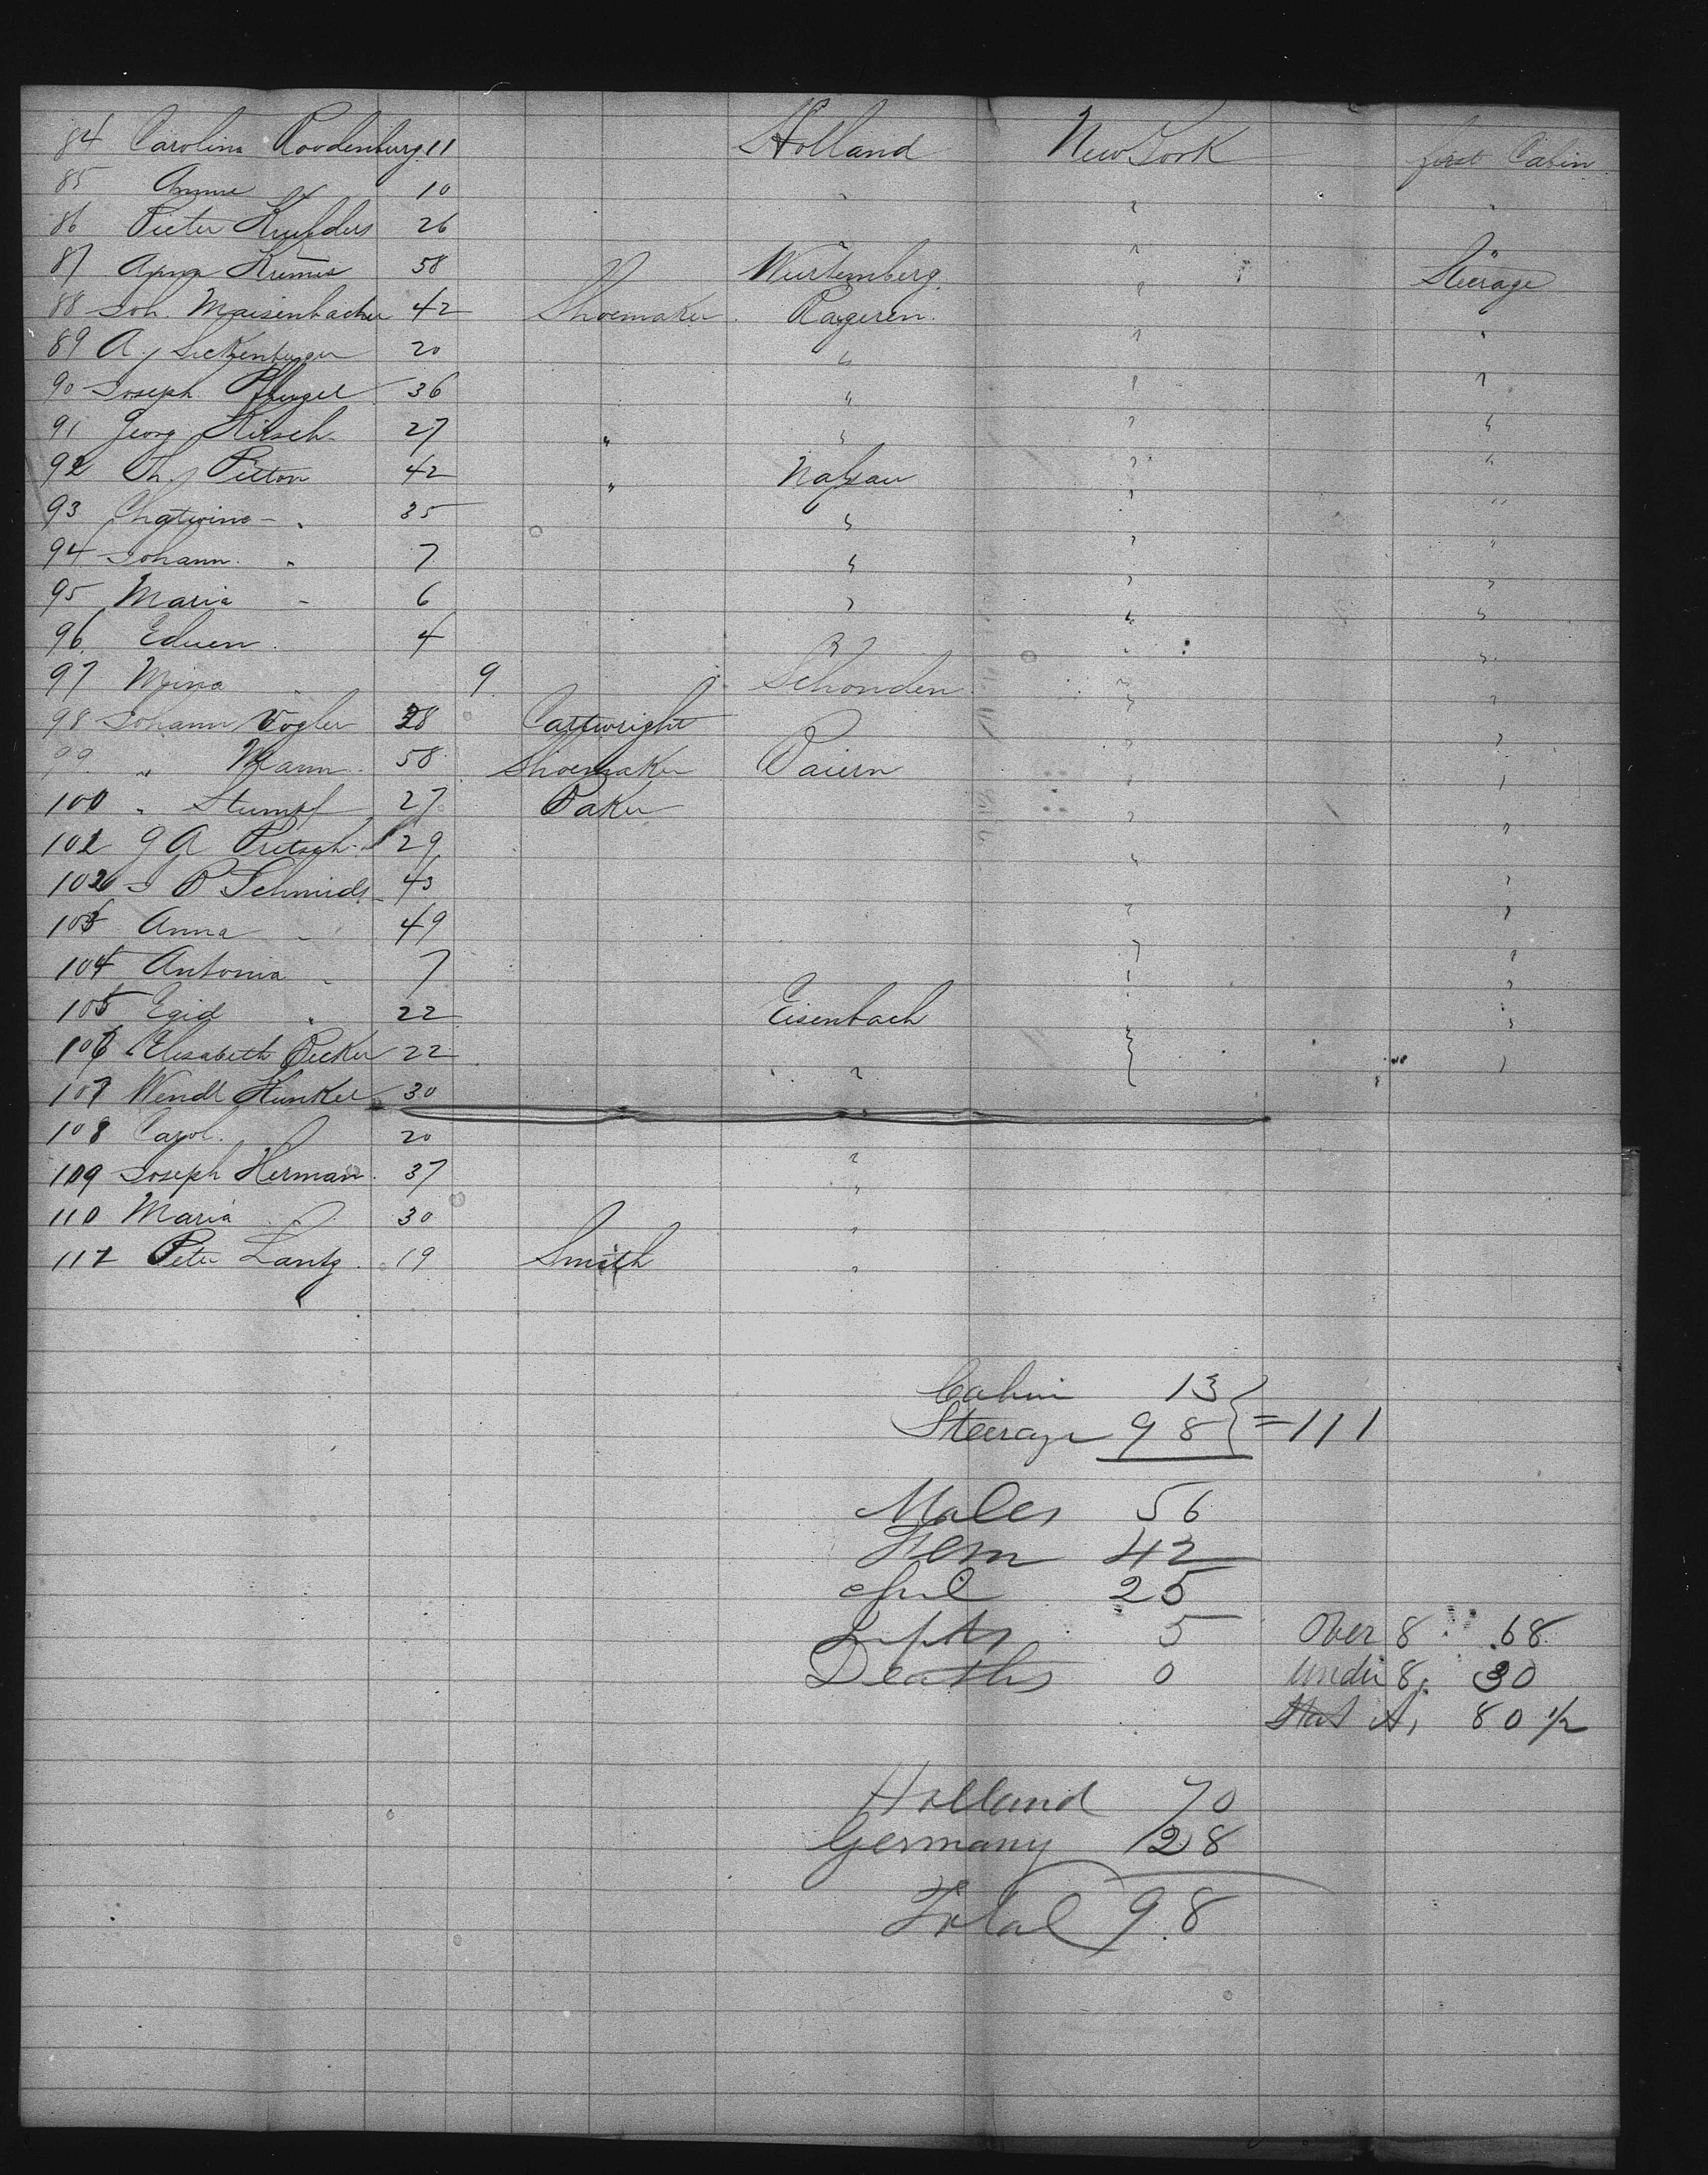 84 Carolina Roodenburg 11 Holland New York first Cabin
85 Anne 10 " " "
86 Pieter 26 " " "
87 Anna Krämer 58 Wurtemberg " Steerage
88 Joh. Maisenbacher 42 Shoemaker Rageren " "
89 A. 20 " " "
90 Joseph 36 " " "
91 Georg Kirsch 27 " " " "
92 Th. Pitton 42 " Naßau " "
93 - " 35 " " "
94 Johann " 7 " " "
95 Maria - 6 " " "
96 Eduen 4 " " "
97 Mina " 9 Schonden " "
98 Johann Vogler 38 Cartwright " "
99 " Mann 58 Shoemaker Baiern " "
100 " Stumpf 27 Baker " "
102 G A 29 " "
102 J P Schmidt 43 " "
103 Anna - 49 " "
104 Antonia " 7 " "
105 Egid " 22 Eisenbach " "
106 Elisabeth Becker 22 " "
107 Wendl Hunkel 30 "
108 Carol. 20
109 Joseph Herman 37 "
110 Maria " 30 "
112 Peter Lantz 19 Smith "
Cabin 13
Steerage 98 } = 111
Males 56
Fem 42
25
5 Over 8 68
Deaths 0 Under 8, 30
80 1/2
Holland 70
Germany 28
Total 98